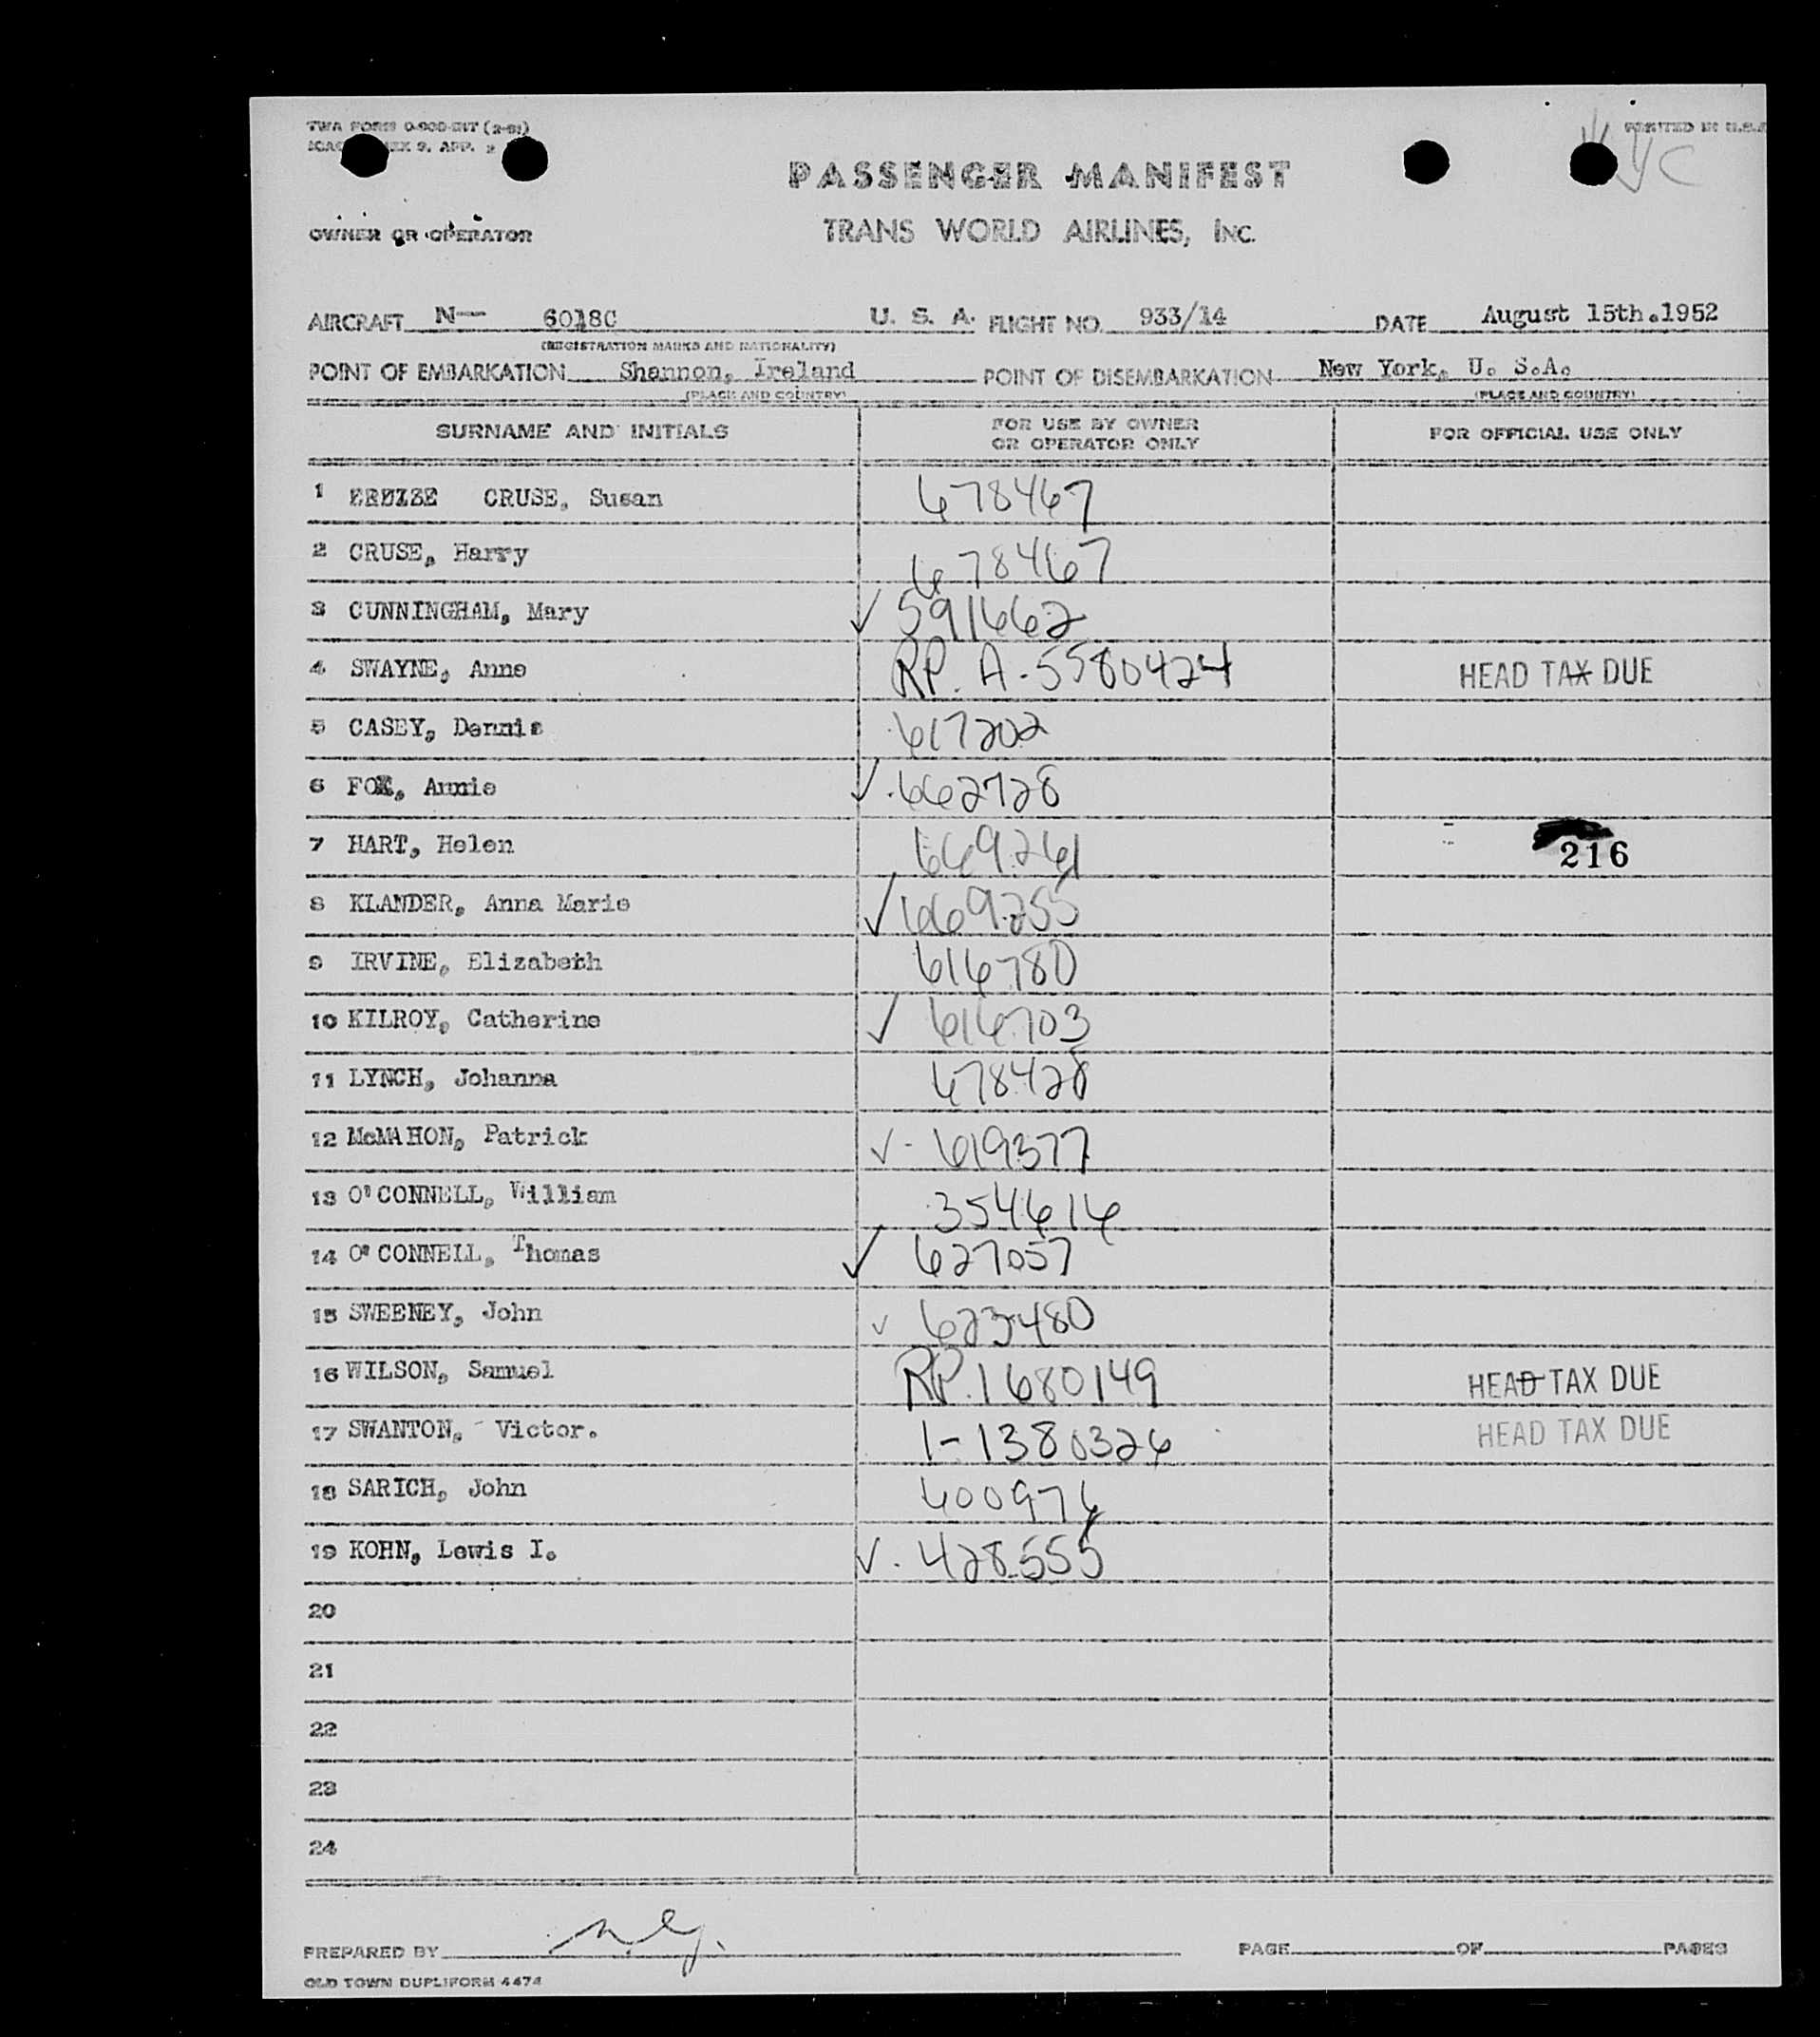 TWA FORM 0-900-INT (2-51)
ICAO ANNEX 9, APP. 2
PRINTED IN U.S.A.
VC
PASSENGER MANIFEST
OWNER OR OPERATOR TRANS WORLD AIRLINES, INC.
AIRCRAFT N— 6018C U. S. A. FLIGHT NO. 933/14 DATE August 15th.1952
(REGISTRATION MARKS AND NATIONALITY)
POINT OF EMBARKATION Shannon, Ireland POINT OF DISEMBARKATION New York, U. S.A.
(PLACE AND COUNTRY) (PLACE AND COUNTRY)
SURNAME AND INITIALS FOR USE BY OWNER OR OPERATOR ONLY FOR OFFICIAL USE ONLY
1 CRUSE, Susan 678467
2 CRUSE, Harry 678467
3 CUNNINGHAM, Mary ✓ 591662
4 SWAYNE, Anne RP. A-5580424 HEAD TAX DUE
5 CASEY, Dennis 617202
6 FOX, Annie ✓ 662728
7 HART, Helen 669261 216
8 KLANDER, Anna Marie ✓ 669255
9 IRVINE, Elizabeth 616780
10 KILROY, Catherine ✓ 616703
11 LYNCH, Johanna 678428
12 McMAHON, Patrick ✓- 619377
13 O'CONNELL, William 354616
14 O'CONNELL, Thomas ✓ 627057
15 SWEENEY, John ✓ 623480
16 WILSON, Samuel RP. 1680149 HEAD TAX DUE
17 SWANTON, - Victor. 1-1380326 HEAD TAX DUE
18 SARICH, John 400976
19 KOHN, Lewis I. ✓. 428555
20
21
22
23
24
PREPARED BY PAGE OF PAGES
OLD TOWN DUPLIFORM 4474